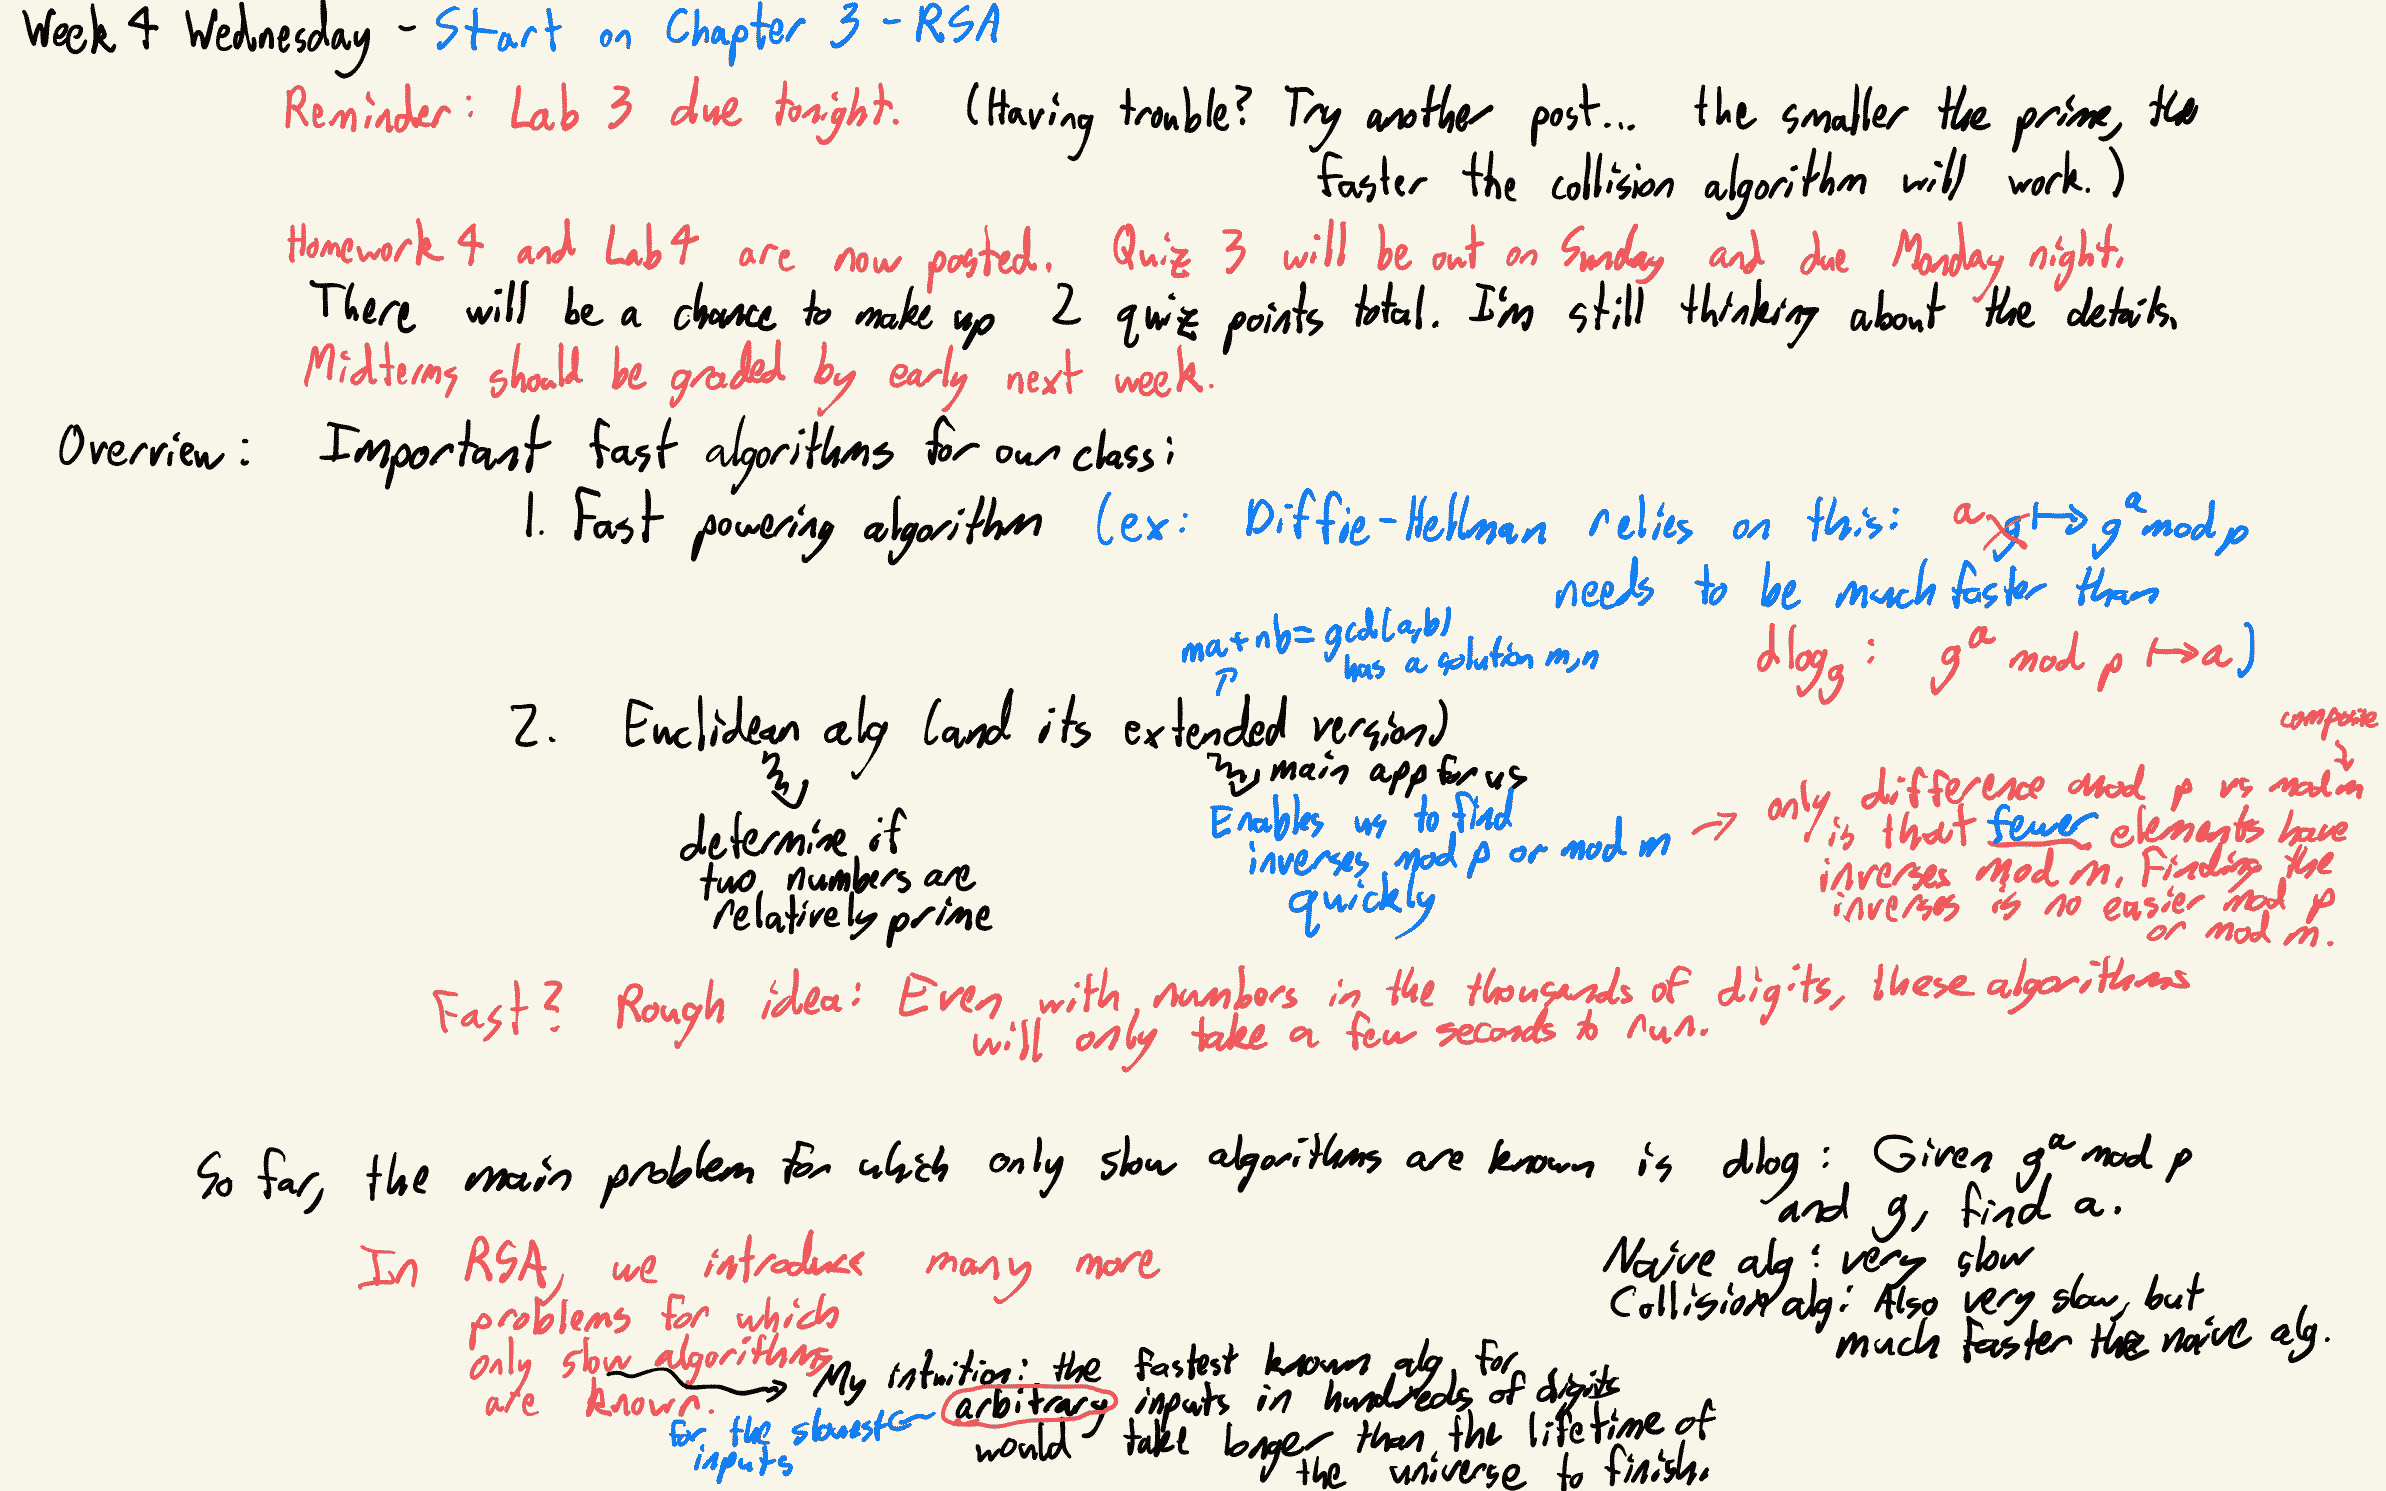 Week 4 Wednesday - Start on Chapter 3 - RSA
Reminder: Lab 3 due tonight. (Having trouble? Try another post... the smaller the prime, the
faster the collision algorithm will work.)
Homework 4 and Lab 4 are now posted. Quiz 3 will be out on Sunday and due Monday night.
There will be a chance to make up 2 quiz points total. I'm still thinking about the details.
Midterms should be graded by early next week.
Overview: Important fast algorithms for our class:
1. Fast powering algorithm (ex: Diffie-Hellman relies on this: a g ↦ g^a mod p
needs to be much faster than
dlog_g : g^a mod p ↦ a)
ma + nb = gcd(a,b)
has a solution m,n
2. Euclidean alg (and its extended version)
determine if
two numbers are
relatively prime
main app for us
Enables us to find
inverses mod p or mod m →
quickly
composite
only difference mod p vs mod m
is that fewer elements have
inverses mod m. Finding the
inverses is no easier mod p
or mod m.
Fast? Rough idea: Even with numbers in the thousands of digits, these algorithms
will only take a few seconds to run.
So far, the main problem for which only slow algorithms are known is dlog: Given g^a mod p
and g, find a.
Naive alg: very slow
Collision alg: Also very slow, but
much faster the naive alg.
In RSA, we introduce many more
problems for which
only slow algorithms
are known.
My intuition: the fastest known alg for
arbitrary inputs in hundreds of digits
would take longer than the lifetime of
the universe to finish.
for the slowest
inputs